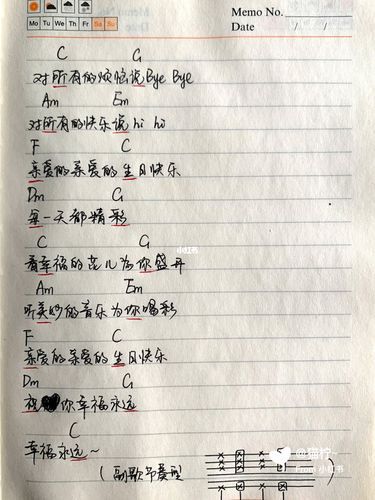 Memo No.
Mo Tu We Th Fr Sa Su
Date / /
C G
对所有的烦恼说Bye Bye
Am Em
对所有的快乐说hi hi
F C
亲爱的亲爱的生日快乐
Dm G
每一天都精彩
C G
看幸福的花儿为你盛开
Am Em
听美妙的音乐为你喝彩
F C
亲爱的亲爱的生日快乐
Dm G
祝你幸福永远
C
幸福永远~
(副歌节奏型
)
小红书